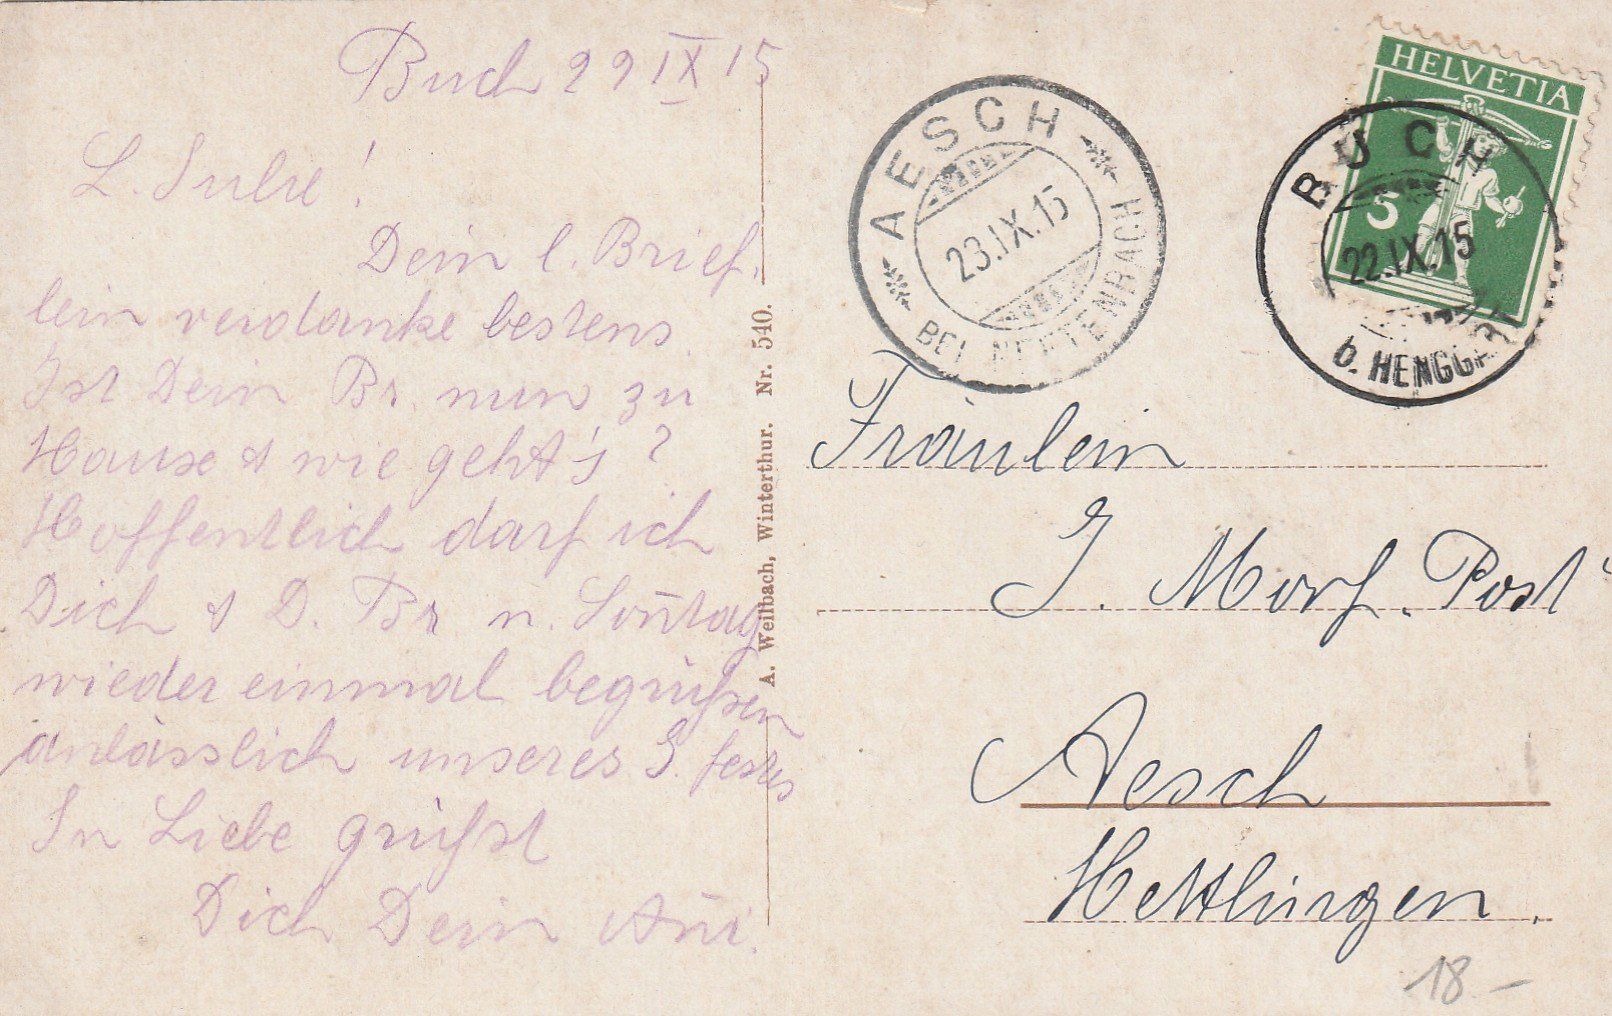 Buch 22 IX 15
L.
Dein l. Brief-
lein verdanke bestens.
Ist Dein Br. nun zu
Hause & wie geht's?
Hoffentlich darf ich
Dich & D. Br n. Son̄tag
wieder einmal begrüßen
anlässlich unseres S. festes
In Liebe grüßt
Dich Dein
A. Weilbach, Winterthur. Nr. 540.
AESCH
23.IX.15
BEI NEFTENBACH
HELVETIA
5
BUCH
22.IX.15
b. HENGGART
Fräulein
J. Morf. Post
Aesch
Hettlingen.
18.-